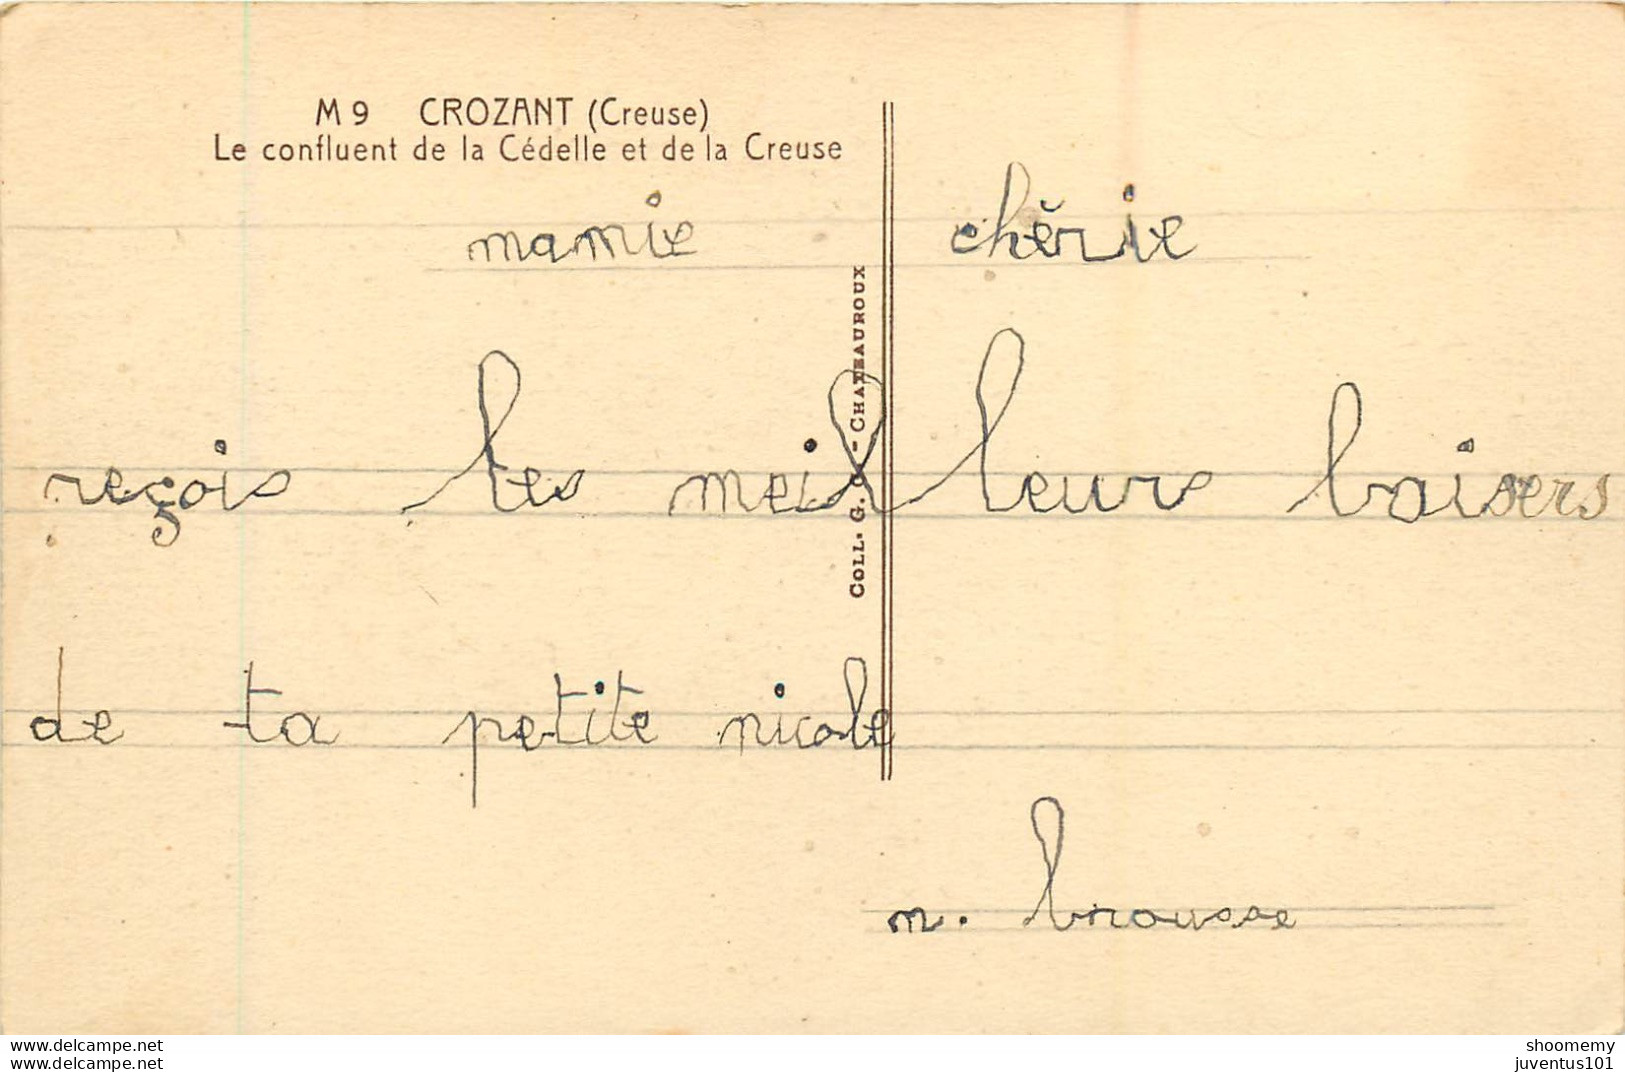 M 9 CROZANT (Creuse)
Le confluent de la Cédelle et de la Creuse
mamie chérie
reçois les meilleurs baisers
de ta petite nicole
n. brousse
COLL. G. - CHATEAUROUX
www.delcampe.net
www.delcampe.net
shoomemy
juventus101